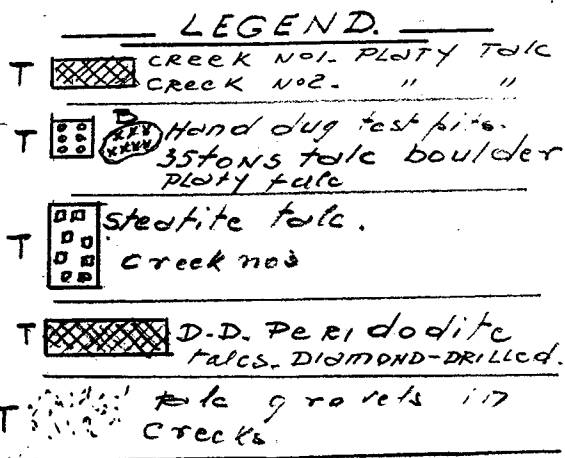 LEGEND.
T CREEK NO1. PLATY TALC
CREEK NO2. " "
B
T Hand dug test pits.
35tons talc boulder
PLATY talc
T Steatite talc.
Creek no3
T D.D. PERIdodite
talcs. DIAMOND-DRILLED.
T talc gravels in
Creeks.